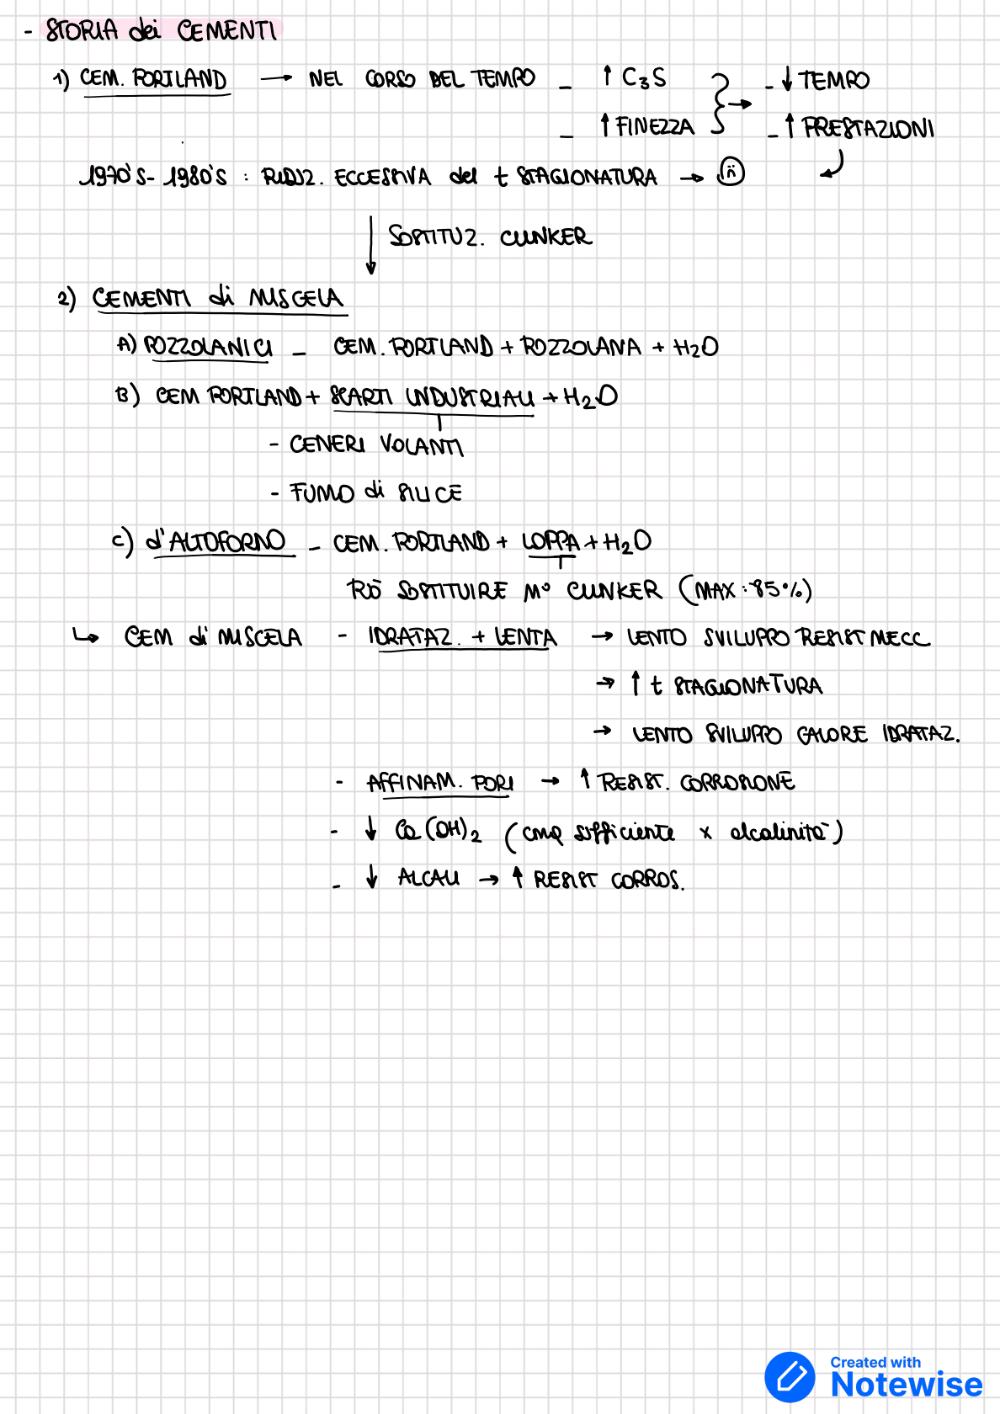 - STORIA dei CEMENTI
1) CEM. PORTLAND → NEL CORSO DEL TEMPO - ↑ C3S } → - ↓ TEMPO
- ↑ FINEZZA - ↑ PRESTAZIONI
1970'S - 1980'S : RIDUZ. ECCESSIVA del t STAGIONATURA →
↓ SOSTITUZ. CLINKER
2) CEMENTI di MISCELA
A) POZZOLANICI - CEM. PORTLAND + POZZOLANA + H2O
B) CEM PORTLAND + SCARTI INDUSTRIALI + H2O
- CENERI VOLANTI
- FUMO di SILICE
C) d'ALTOFORNO - CEM. PORTLAND + LOPPA + H2O
PUÒ SOSTITUIRE M° CLINKER (MAX : 95%)
↳ CEM di MISCELA - IDRATAZ. + LENTA → LENTO SVILUPPO RESIST MECC.
→ ↑ t STAGIONATURA
→ LENTO SVILUPPO CALORE IDRATAZ.
- AFFINAM. PORI → ↑ RESIST. CORROSIONE
- ↓ Ca(OH)2 (cmq sufficiente x alcalinità)
- ↓ ALCALI → ↑ RESIST CORROS.
Created with
Notewise